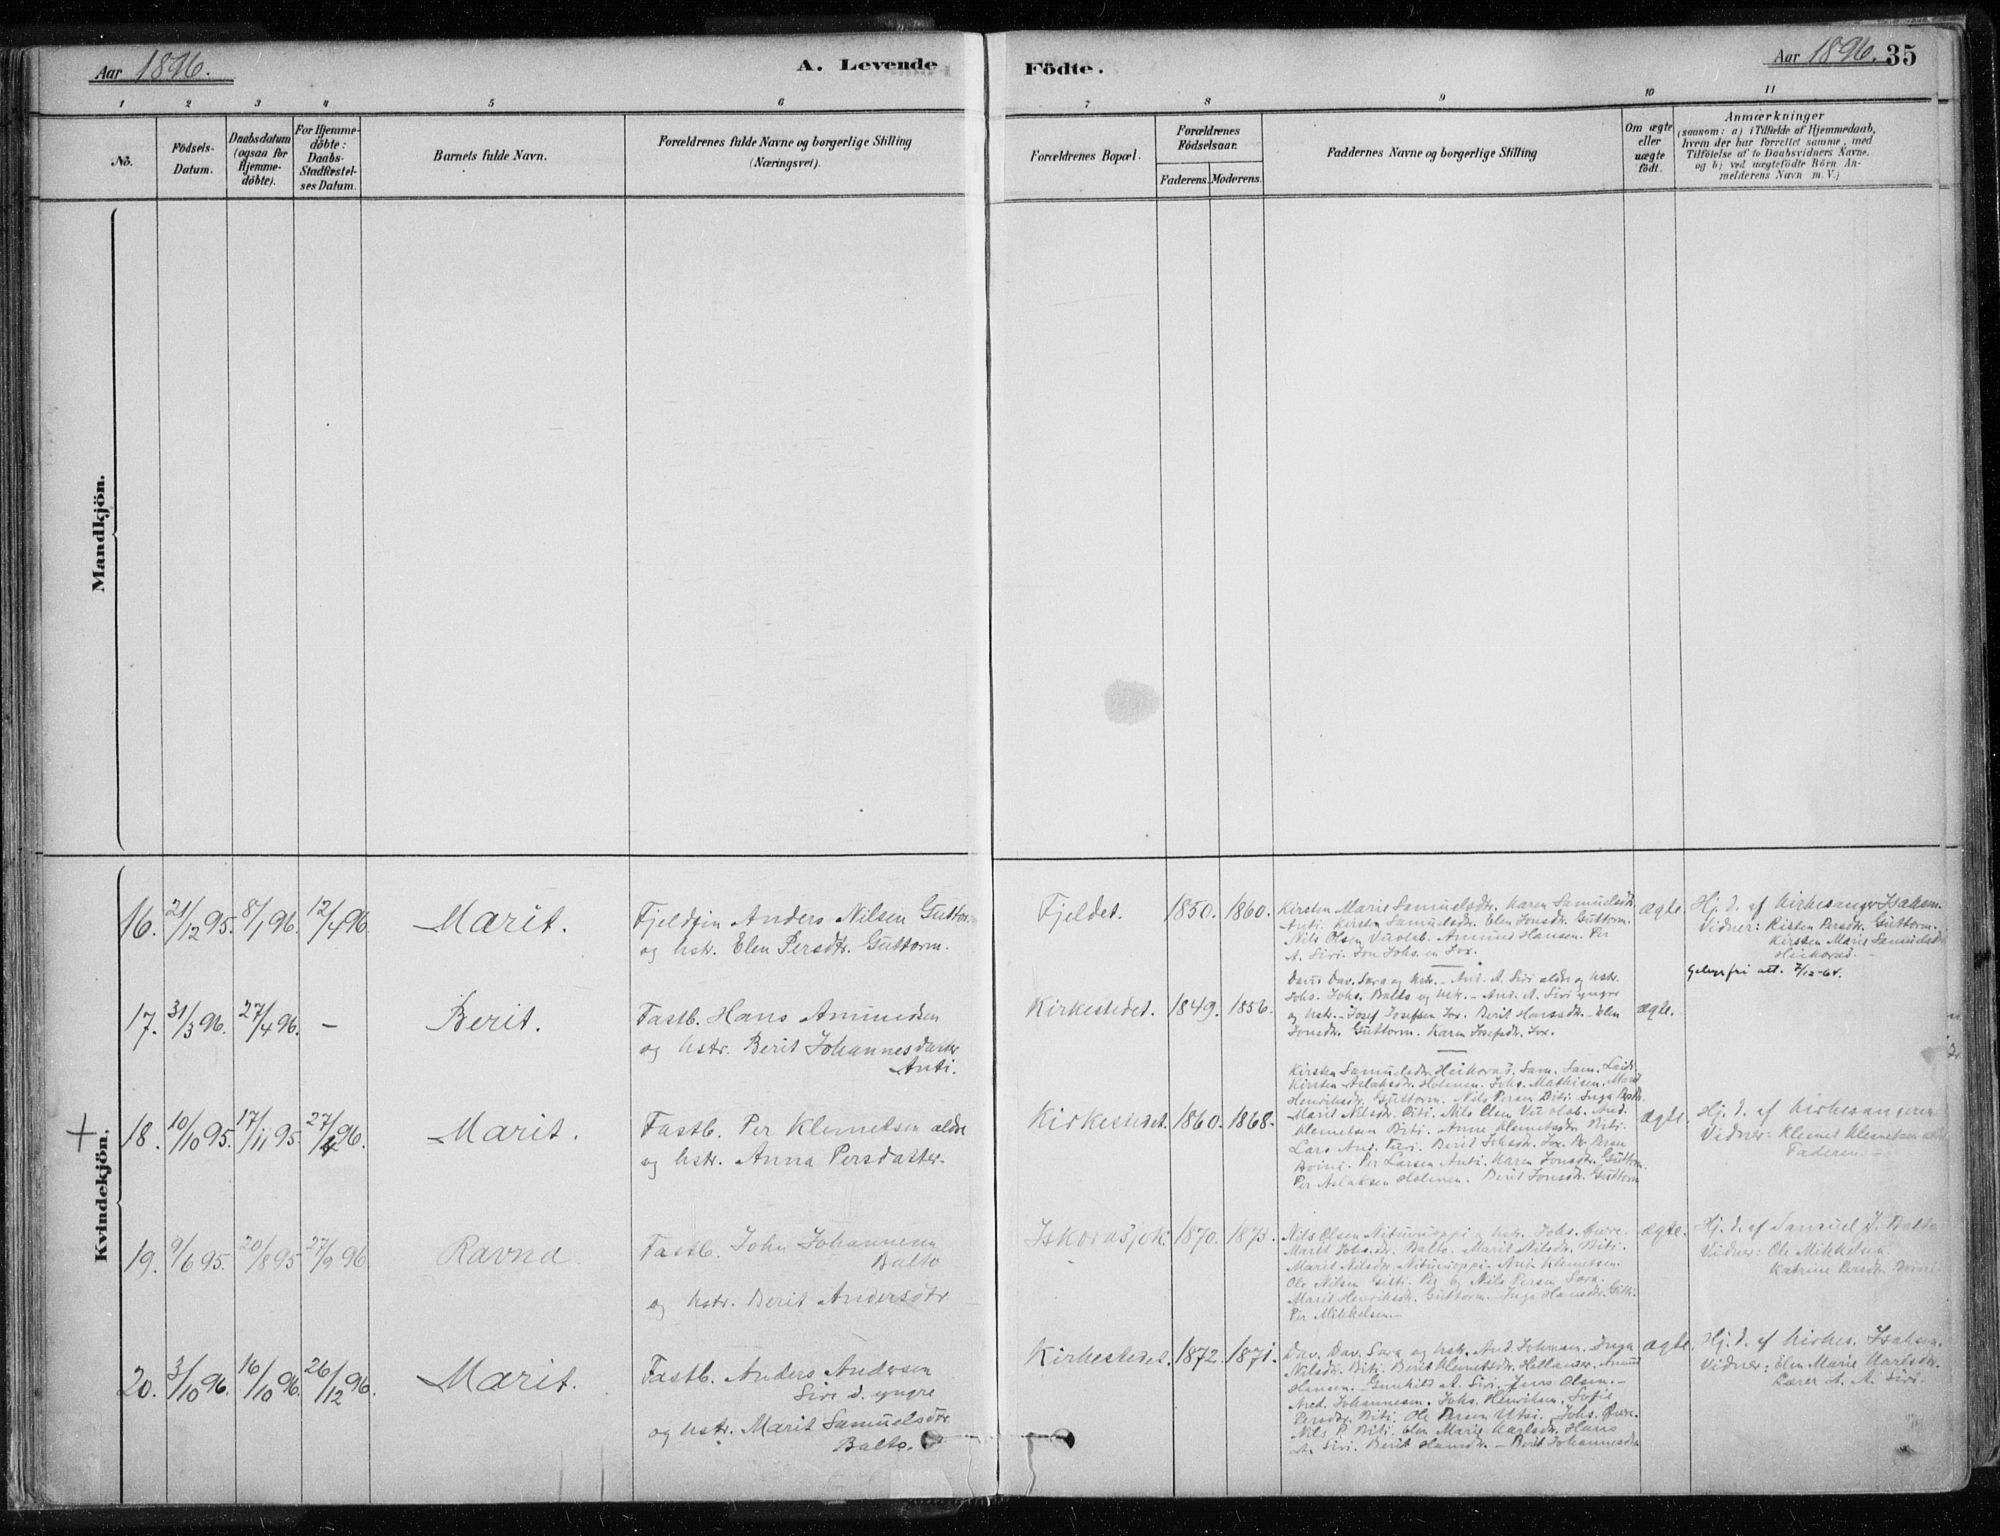 Aar 1896.
A. Levende Födte.
Aar 1896. 35
1 2 3 4 5 6 7 8 9 10 11
No.
Födsels-
Datum.
Daabsdatum
(ogsaa for
Hjemme-
döbte).
For Hjemme-
döbte:
Daabs-
Stadfæstel-
ses Datum.
Barnets fulde Navn.
Forældrenes fulde Navne og borgerlige Stilling
(Næringsvei).
Forældrenes Bopæl.
Forældrenes
Födselsaar.
Faderens. Moderens.
Faddernes Navne og borgerlige Stilling
Om ægte
eller
uægte
födt.
Anmærkninger
(saasom: a) i Tilfælde af Hjemmedaab,
hvem der har forrettet samme, med
Tilföielse af to Daabsvidners Navne,
og b) ved uægtefödte Börn An-
melderens Navn m. V.)
Mandkjön.
Kvindekjön.
16. 21/12 95. 8/1 96. 12/4 96. Marit.
Fjeldfin Anders Nilsen Guttorm
og hstr. Elen Persdtr. Guttorm.
Fjeldet. 1850. 1860.
Kirsten Marie Samuelsdtr. Karen Samuelsdtr.
Anti. Kirsten Samuelsdtr. Elen Jonsdtr. Guttorm.
Nils Olsen Vuolab. Amund Hansen. Per
A. Siri. Jon Johs.en Jox.
ægte.
Hj. d. af Kirkesanger Isaksen.
Vidner: Kisten Persdtr. Guttorm.
Kirsten Marie Samuelsdtr
Heikorad.
Gebyrfri att. 7/12-64.
17. 31/3 96. 27/4 96. – Berit.
Fastb. Hans Amundsen
og hstr. Berit Johannesdatter
Anti.
Kirkestedet. 1849. 1856.
Dav. Sara og hstr. – And. A. Siri ældre og hstr.
Johs. Johs. Balto og hstr. – And. A. Siri yngre
og hstr. – Josef Josefsen Jox. Berit Hansdtr. – Elen
Jonsdtr. Guttorm. Karen Josefsdtr. Jox.
ægte.
+
18. 10/10 95. 17/11 95. 27/2 96. Marit.
Fastb. Per Klemetsen ældre
og hstr. Anna Persdatter.
Kirkestedet. 1860. 1868.
Kirsten Samuelsdtr. Heikorad. Sam. Sam.
Kirsten Aslaksdtr. Holmen. Johs. Mathisen. Marit
Henriksdtr. Guttorm. Nils Persen Biti. Inga Persdtr.
Marit Nilsdtr. Biti. Nils Olsen Vuolab. And.
Klemetsen Biti. Anne Klemetsdtr. Biti.
Lars And. Berit Johsdtr. Jox. Per Persen
Boini. Per Larsen Anti. Karen Jonsdtr. Guttorm.
Per Aslaksen Holmen. Berit Jonsdtr. Guttorm
ægte.
Hj. d. af Kirkesangeren
Vidner: Klemet Klemetsen
Faderen. –
19. 9/6 95. 20/8 95 27/9 96. Ravna
Fastb. John Johannesen
Balto
og hstr. Berit Andersdtr.
Iskorasjok. 1870. 1873.
Nils Olsen Niturioppi og hstr. Johs.
Marit Johsdtr. Balto. Marit Nilsdtr. Biti.
Marit Nilsdtr. Niturioppi. And. Klemetsen.
Ole Nilsen Per og Nils Persen Sara.
Marit Henriksdtr. Guttorm. Inga Hansdtr.
Per Mikkelsen. –
ægte.
Hj. d. af Samuel J. Balto
Vidner: Ole Mikkelsen.
Katrine Persdtr. Boini.
20. 3/10 96. 16/10 96. 26/12 96. Marit.
Fastb. Anders Andersen
Siri d. yngre
og hstr. Marit Samuelsdtr.
Balto.
Kirkestedet. 1872. 1871.
Dav. Dav. Sara og hstr. And. Johansen. Inga
Nilsdtr. Biti. Berit Klemetsdtr. Hellander. Amund
Hansen. Gunhild A. Siri. Jens Olsen. –
And. Johannesen. Johs. Henriksen. Sofie
Persdtr. Biti. Ole Persen Utsi. Johs.
Nils P. Biti. Elen Marie Karlsdtr. Hans
A. Siri. Berit Hansdtr. – Berit Johannesdtr
ægte.
Hj. d. af Kirkes. Isaksen.
Vidner: Elen Marie Karlsdtr.
Lærer A. A. Siri.